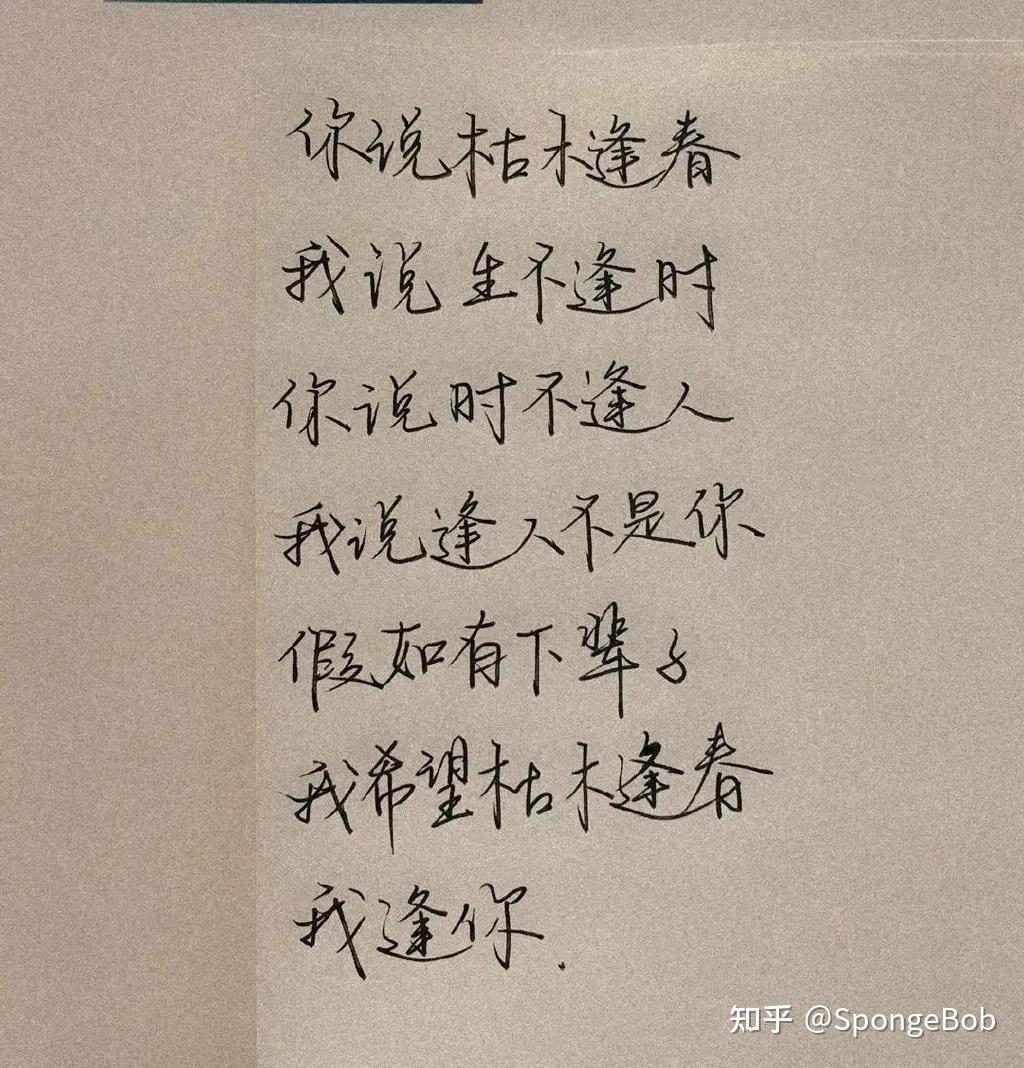 你说枯木逢春
我说生不逢时
你说时不逢人
我说逢人不是你
假如有下辈子
我希望枯木逢春
我逢你.
知乎 @SpongeBob